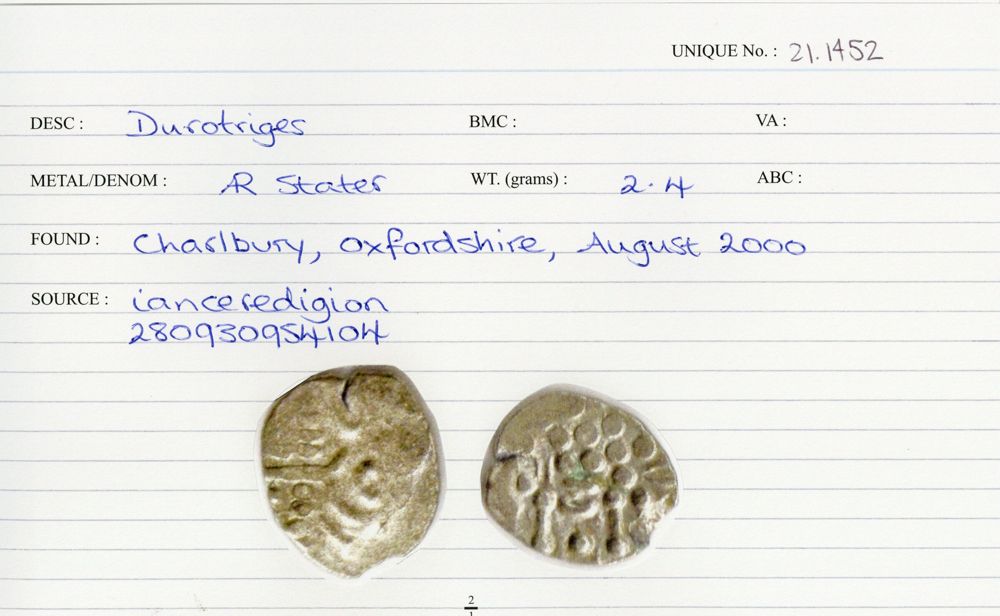 UNIQUE No. : 21.1452
DESC : Durotriges BMC : VA :
METAL/DENOM : AR Stater WT. (grams) : 2.4 ABC :
FOUND : Charlbury, Oxfordshire, August 2000
SOURCE : ianceredigion
280930954104
2
1